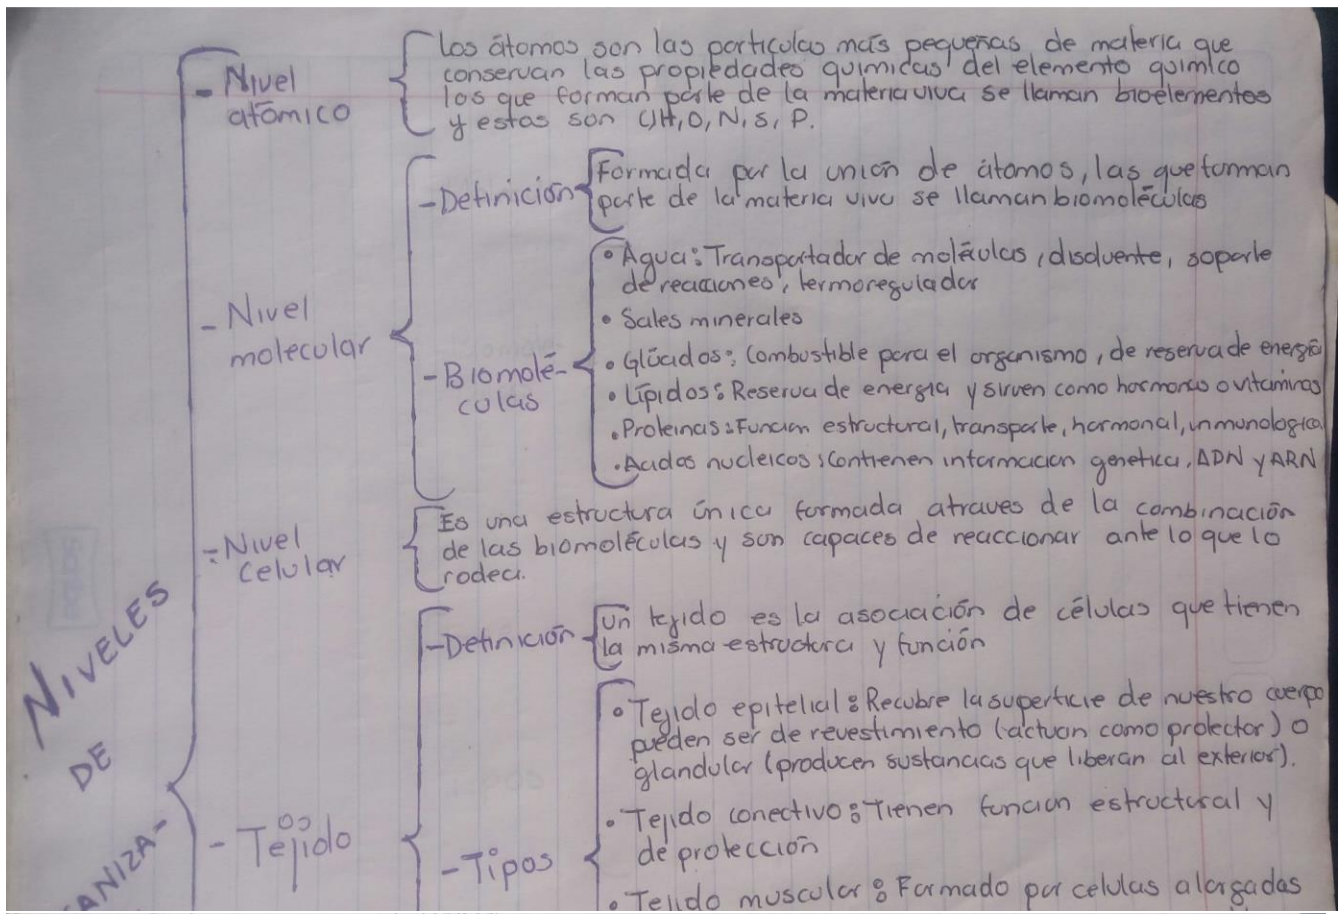 NIVELES
DE
ANIZA-
- Nivel
atómico
Los átomos son las particulas más pequeñas de materia que
conservan las propiedades quimicas del elemento quimico
los que forman parte de la materia viva se llaman bioelementos
y estas son C,H,O,N,S,P.
- Nivel
molecular
- Definición
Formada por la unión de átomos, las que forman
parte de la materia viva se llaman biomoléculas
- Biomolé-
culas
• Agua: Transportador de moléculas, disolvente, soporte
de reacciones, termoregulador
• Sales minerales
• Glúcidos: Combustible para el organismo, de reserva de energía
• Lípidos: Reserva de energia y sirven como hormonas o vitaminas
• Proteinas: Funcion estructural, transporte, hormonal, inmunologica
• Acidos nucleicos: Contienen informacion genetica, ADN y ARN
- Nivel
celular
Es una estructura única formada atraves de la combinación
de las biomoléculas y son capaces de reaccionar ante lo que lo
rodea.
- Tejido
- Definición
Un tejido es la asociación de células que tienen
la misma estructura y función
- Tipos
• Tejido epitelial: Recubre la superficie de nuestro cuerpo
pueden ser de revestimiento (actuan como protector) o
glandular (producen sustancias que liberan al exterior).
• Tejido conectivo: Tienen funcion estructural y
de protección
• Tejido muscular: Formado por celulas alargadas